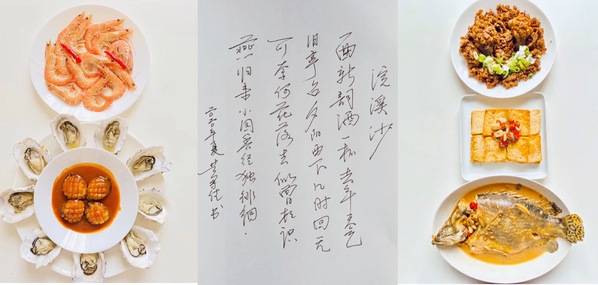 浣溪沙
一曲新詞酒一杯去年天气
旧亭台夕阳西下几时回无
可奈何花落去似曾相识
燕归来小园香径独徘徊.
年夏 书